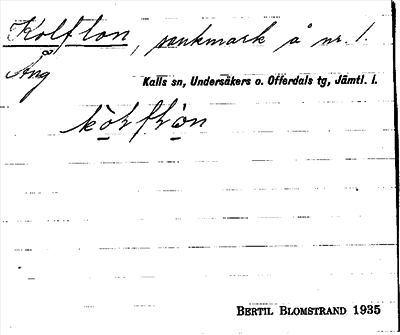 Kolfton, sankmark å nr. 1.
Äng
Kalls sn, Undersåkers o. Offerdals tg, Jämtl. l.
BERTIL BLOMSTRAND 1935